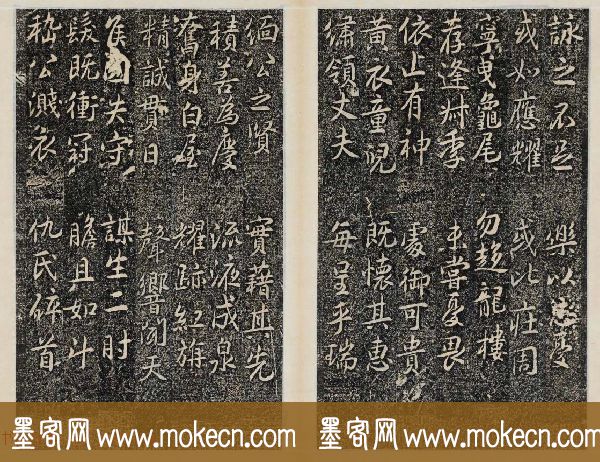 詠之不足 樂以忘憂
或如應耀 或比莊周
寧曳龜尾 勿趍龍樓
荐逢艸季 未嘗憂畏
依止有神 處御可貴
黃衣童兒 既懷其惠
繡領丈夫 每呈乎瑞
緬公之賢 實藉其先
積善為慶 流液成泉
奮身白屋 耀跡紅旃
精誠貫日 聲響聞天
侯國失守 謀生二肘
髮既衝冠 膽且如斗
嵇公濺衣 仇氏碎首
墨客网 www.mokecn.com 墨客网 www.mokecn.com